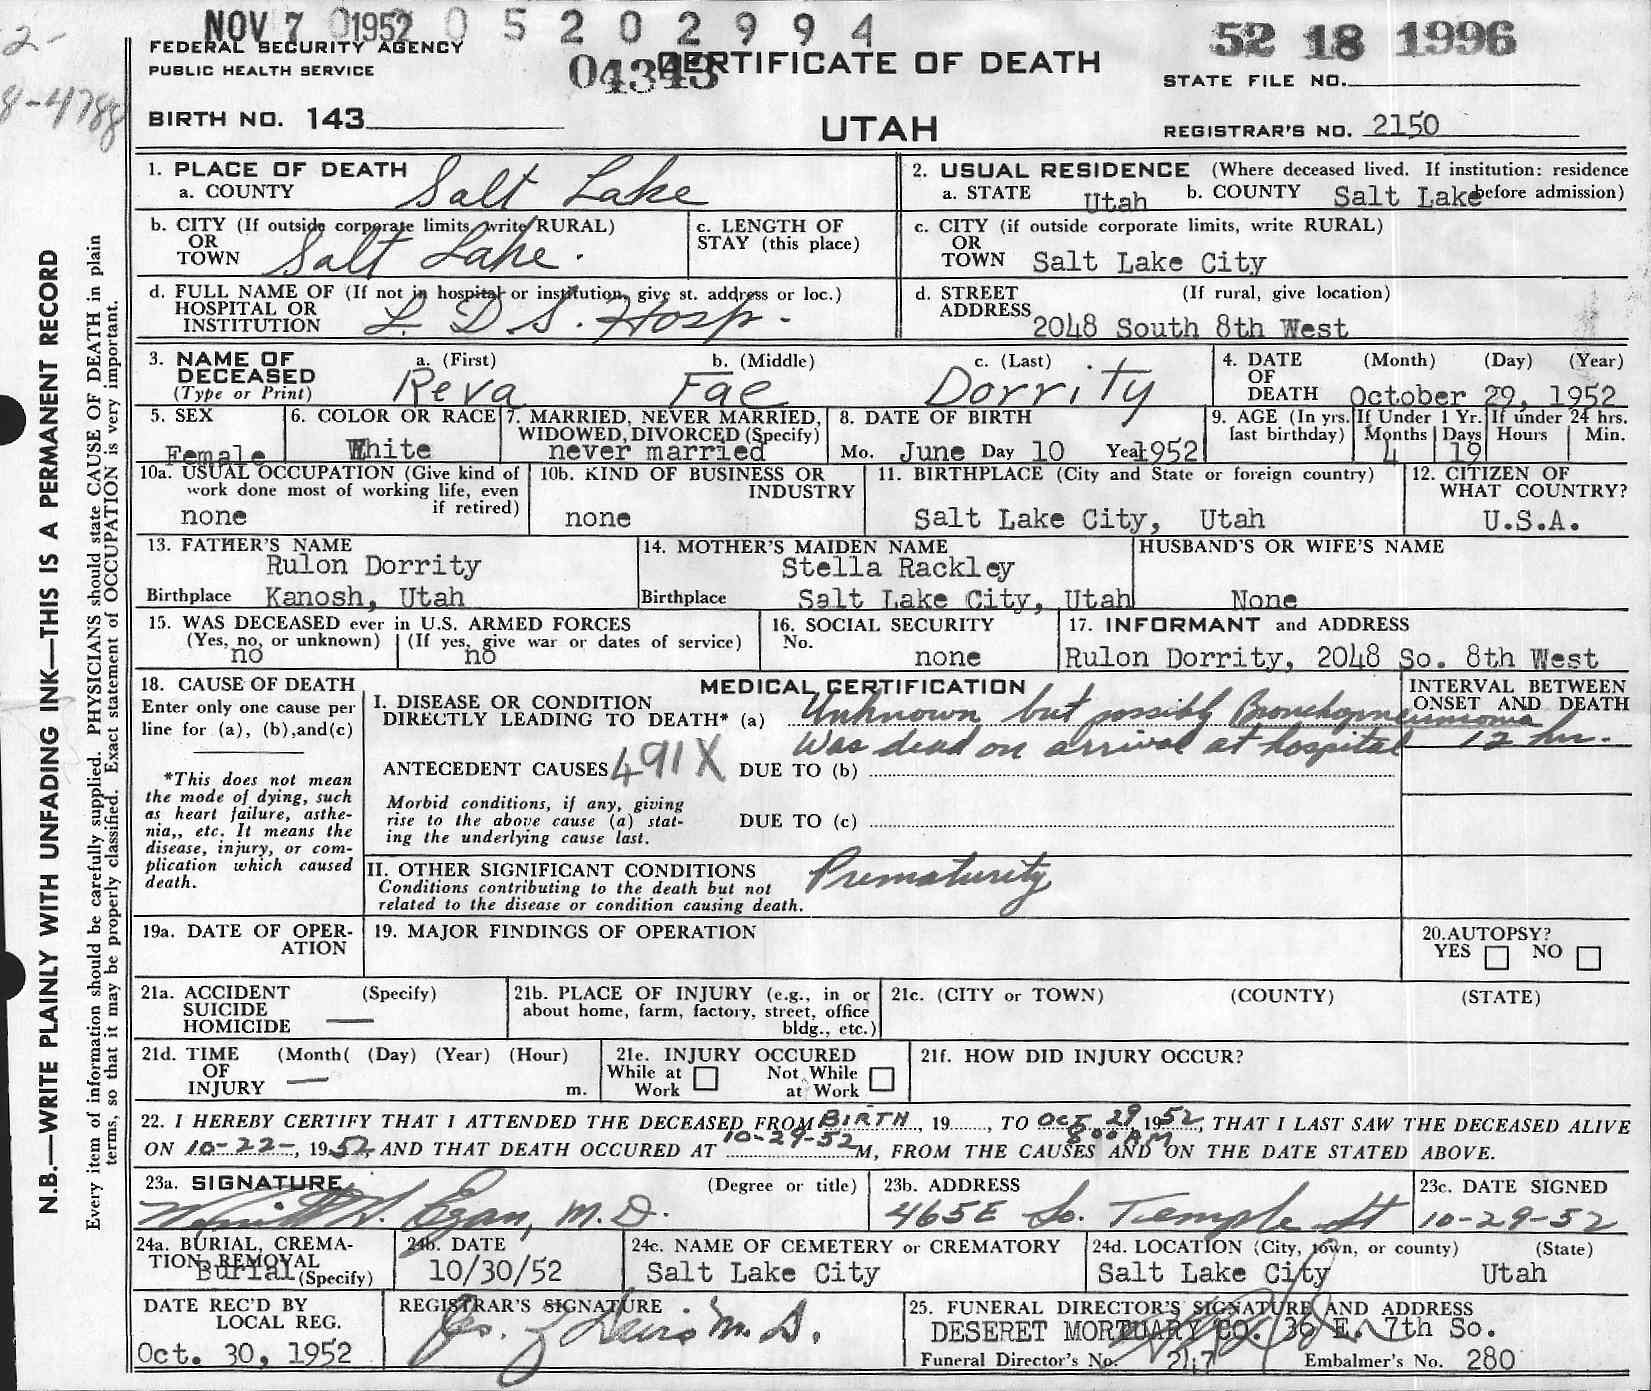 NOV 7 1952 0 5 2 0 2 9 9 4
52 18 1996
2-
8-4788
FEDERAL SECURITY AGENCY
PUBLIC HEALTH SERVICE
CERTIFICATE OF DEATH
STATE FILE NO.
BIRTH NO. 143
UTAH
REGISTRAR'S NO. 2150
N.B.—WRITE PLAINLY WITH UNFADING INK—THIS IS A PERMANENT RECORD
Every item of information should be carefully supplied. PHYSICIANS should state CAUSE OF DEATH in plain
terms, so that it may be properly classified. Exact statement of OCCUPATION is very important.
1. PLACE OF DEATH
a. COUNTY Salt Lake
2. USUAL RESIDENCE (Where deceased lived. If institution: residence
a. STATE Utah b. COUNTY Salt Lake before admission)
b. CITY (If outside corporate limits, write RURAL)
OR
TOWN Salt Lake.
c. LENGTH OF
STAY (this place)
c. CITY (if outside corporate limits, write RURAL)
OR
TOWN Salt Lake City
d. FULL NAME OF (If not in hospital or institution, give st. address or loc.)
HOSPITAL OR
INSTITUTION L. D. S. Hosp.
d. STREET (If rural, give location)
ADDRESS 2048 South 8th West
3. NAME OF DECEASED
(Type or Print)
a. (First) b. (Middle) c. (Last)
Reva Fae Dorrity
4. DATE (Month) (Day) (Year)
OF
DEATH October 29, 1952
5. SEX
Female
6. COLOR OR RACE
White
7. MARRIED, NEVER MARRIED,
WIDOWED, DIVORCED (Specify)
never married
8. DATE OF BIRTH
Mo. June Day 10 Year 1952
9. AGE (In yrs. last birthday)
If Under 1 Yr. If under 24 hrs.
Months Days Hours Min.
4 19
10a. USUAL OCCUPATION (Give kind of
work done most of working life, even
if retired)
none
10b. KIND OF BUSINESS OR
INDUSTRY
none
11. BIRTHPLACE (City and State or foreign country)
Salt Lake City, Utah
12. CITIZEN OF
WHAT COUNTRY?
U.S.A.
13. FATHER'S NAME
Rulon Dorrity
Birthplace Kanosh, Utah
14. MOTHER'S MAIDEN NAME
Stella Rackley
Birthplace Salt Lake City, Utah
HUSBAND'S OR WIFE'S NAME
None
15. WAS DECEASED ever in U.S. ARMED FORCES
(Yes, no, or unknown) (If yes, give war or dates of service)
no no
16. SOCIAL SECURITY
No.
none
17. INFORMANT and ADDRESS
Rulon Dorrity, 2048 So. 8th West
18. CAUSE OF DEATH
Enter only one cause per
line for (a), (b),and(c)
*This does not mean
the mode of dying, such
as heart failure, asthe-
nia,, etc. It means the
disease, injury, or com-
plication which caused
death.
MEDICAL CERTIFICATION
I. DISEASE OR CONDITION
DIRECTLY LEADING TO DEATH* (a) Unknown but possibly Bronchopneumonia
Was dead on arrival at hospital
INTERVAL BETWEEN
ONSET AND DEATH
12 hr.
ANTECEDENT CAUSES 491X DUE TO (b)
Morbid conditions, if any, giving
rise to the above cause (a) stat-
ing the underlying cause last.
DUE TO (c)
II. OTHER SIGNIFICANT CONDITIONS
Conditions contributing to the death but not
related to the disease or condition causing death.
Prematurity
19a. DATE OF OPER-
ATION
19. MAJOR FINDINGS OF OPERATION
20.AUTOPSY?
YES NO
21a. ACCIDENT (Specify)
SUICIDE
HOMICIDE —
21b. PLACE OF INJURY (e.g., in or
about home, farm, factory, street, office
bldg., etc.)
21c. (CITY or TOWN) (COUNTY) (STATE)
21d. TIME (Month( (Day) (Year) (Hour)
OF
INJURY — m.
21e. INJURY OCCURED
While at Work Not While at Work
21f. HOW DID INJURY OCCUR?
22. I HEREBY CERTIFY THAT I ATTENDED THE DECEASED FROM BIRTH, 19......, TO OCT. 29, 1952, THAT I LAST SAW THE DECEASED ALIVE
ON 10-22-, 1952 AND THAT DEATH OCCURED AT 10-29-52 8:00 AM M, FROM THE CAUSES AND ON THE DATE STATED ABOVE.
23a. SIGNATURE (Degree or title)
Egan, M.D.
23b. ADDRESS
465 E So. Temple St
23c. DATE SIGNED
10-29-52
24a. BURIAL, CREMA-
TION, REMOVAL
Burial (Specify)
24b. DATE
10/30/52
24c. NAME OF CEMETERY or CREMATORY
Salt Lake City
24d. LOCATION (City, town, or county) (State)
Salt Lake City Utah
DATE REC'D BY
LOCAL REG.
Oct. 30, 1952
REGISTRAR'S SIGNATURE
M.D.
25. FUNERAL DIRECTOR'S SIGNATURE AND ADDRESS
DESERET MORTUARY CO. 36 E. 7th So.
Funeral Director's No. 217 Embalmer's No. 280